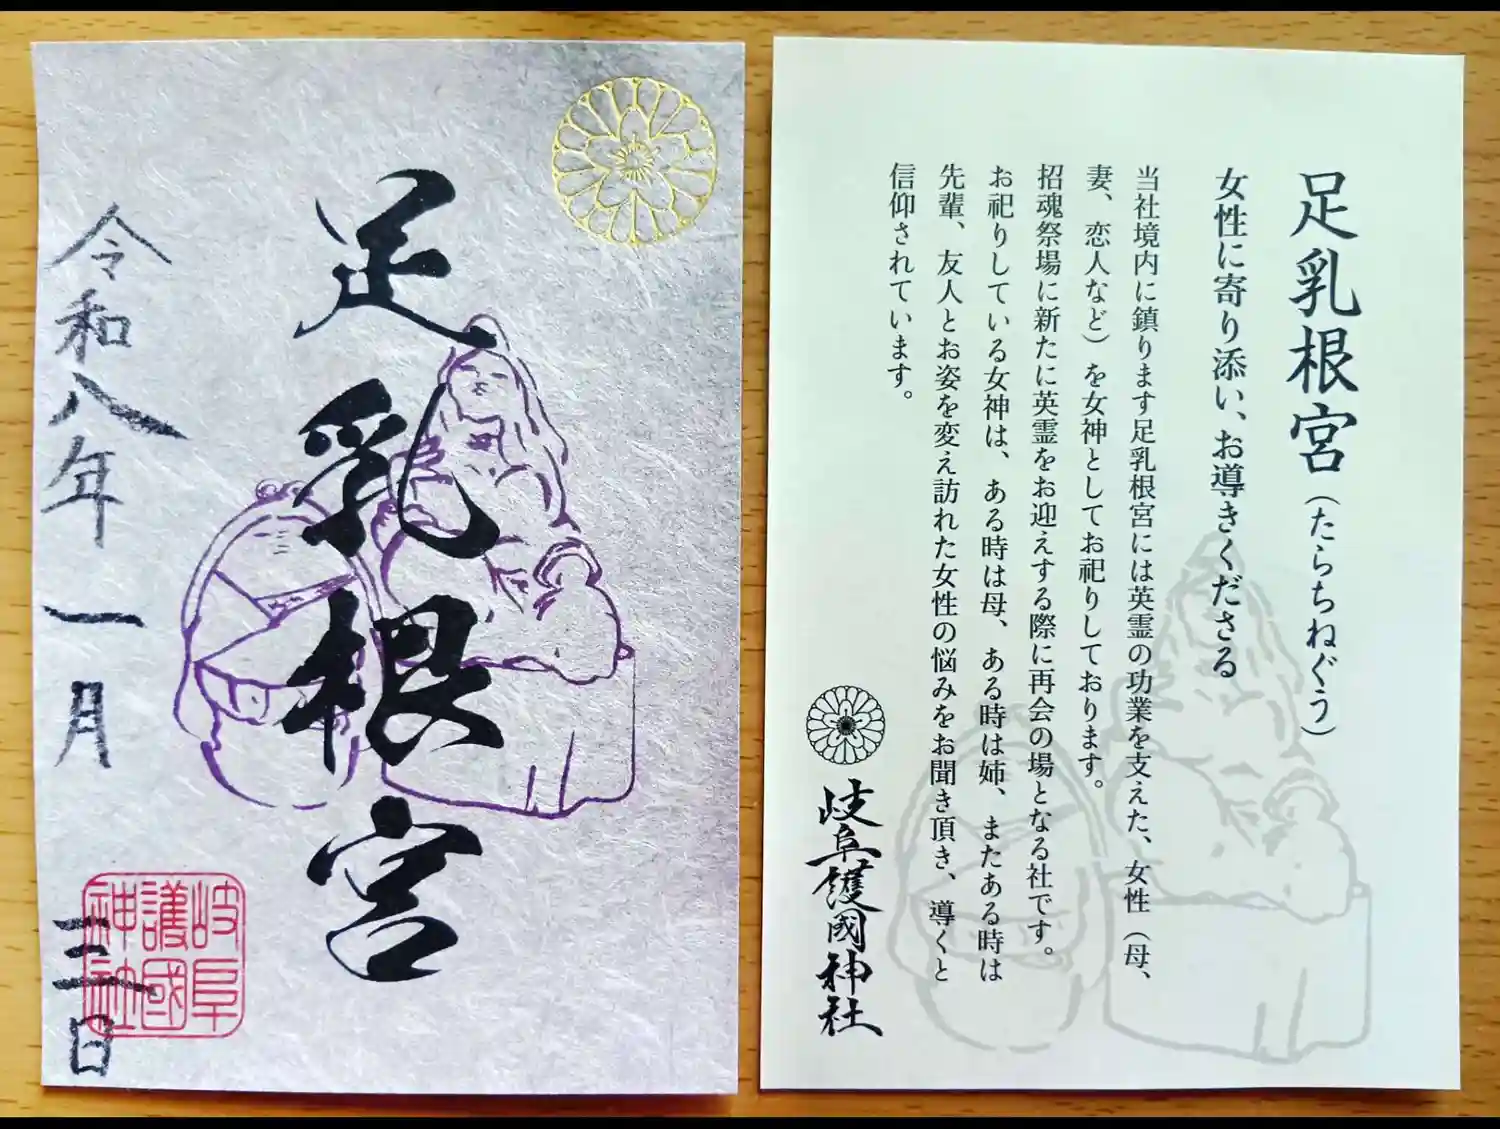 足乳根宮
令和八年一月三日
岐阜
護國
神社
足乳根宮(たらちねぐう)
女性に寄り添い、お導きくださる
当社境内に鎮ります足乳根宮には英霊の功業を支えた、女性(母、
妻、恋人など)を女神としてお祀りしております。
招魂祭場に新たに英霊をお迎えする際に再会の場となる社です。
お祀りしている女神は、ある時は母、ある時は姉、またある時は
先輩、友人とお姿を変え訪れた女性の悩みをお聞き頂き、導くと
信仰されています。
岐阜護國神社